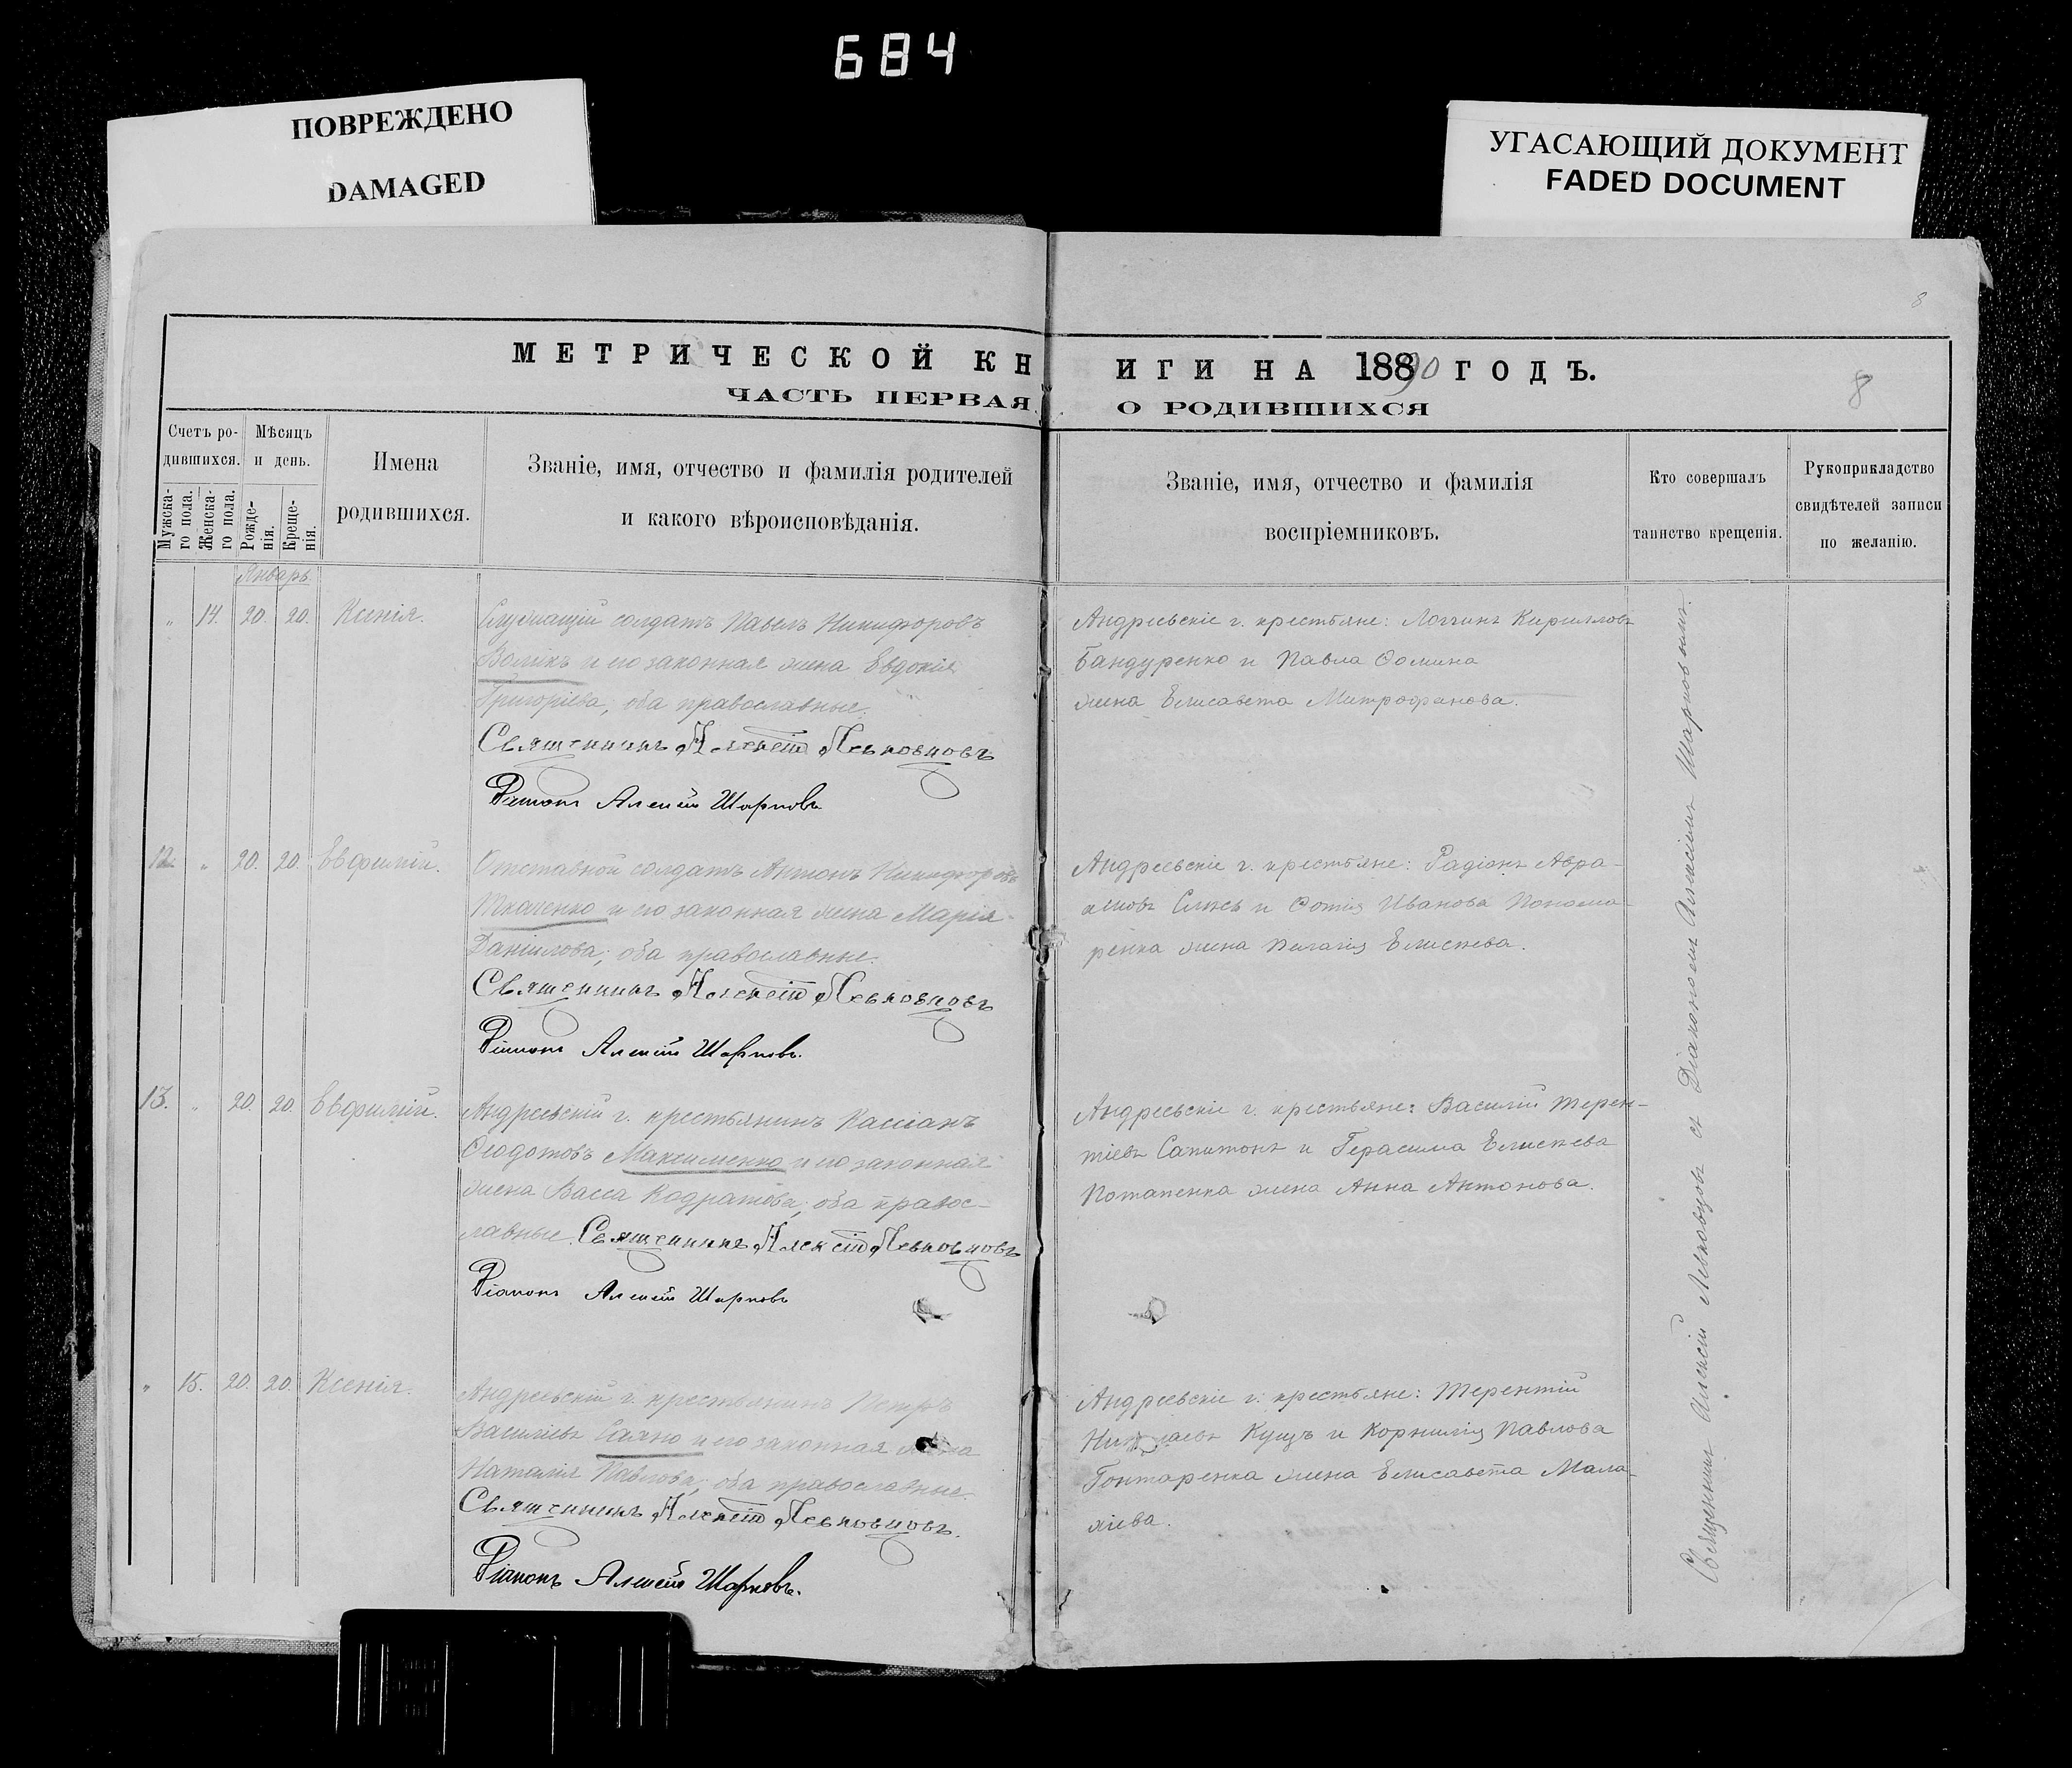 684
ПОВРЕЖДЕНО
DAMAGED
УГАСАЮЩИЙ ДОКУМЕНТ
FADED DOCUMENT
8
МЕТРИЧЕСКОЙ КНИГИ НА 1890 ГОДЪ.
8
ЧАСТЬ ПЕРВАЯ О РОДИВШИХСЯ
Счетъ родившихся.
Мужскаго пола.
Женскаго пола.
Мѣсяцъ и день.
Рожденія.
Крещенія.
Имена
родившихся.
Званіе, имя, отчество и фамилія родителей
и какого вѣроисповѣданія.
Званіе, имя, отчество и фамилія
воспріемниковъ.
Кто совершалъ
таинство крещенія.
Рукоприкладство
свидѣтелей записи
по желанію.
Январь.
" 14. 20. 20. Ксенія.
Служащій солдатъ Павелъ Никифоровъ
Воликъ и его законная жена Евдокія
Григоріева, оба православные.
Священникъ Алексій Левковцовъ
Діаконъ Алексій Шарковъ
Андреевскіе г. крестьяне: Логгинъ Кирилловъ
Бандуренко и Павла Ѳомина
жена Елисавета Митрофанова.
12. " 20. 20. Евфимій.
Отставной солдатъ Антонъ Никифоровъ
Ткаченко и его законная жена Марія
Даніилова, оба православные.
Священникъ Алексій Левковцовъ
Діаконъ Алексій Шарковъ.
Андреевскіе г. крестьяне: Радіонъ Авра-
амовъ и Фотія Иванова Понома-
ренка жена Пелагія Елисѣева.
13. " 20. 20. Евфимій.
Андреевскій г. крестьянинъ Кассіанъ
Ѳеодотовъ Максименко и его законная
жена Васса Кодратова, оба правос-
лавные. Священникъ Алексій Левковцовъ
Діаконъ Алексій Шарковъ
Андреевскіе г. крестьяне: Василій Терен-
тіевъ Сапитонъ и Герасима Елисѣева
Потапенка жена Анна Антонова.
" 15. 20. 20. Ксенія.
Андреевскій г. крестьянинъ Петръ
Василіевъ и его законная жена
Наталія Павлова, оба православные.
Священникъ Алексій Левковцовъ.
Діаконъ Алексій Шарковъ.
Андреевскіе г. крестьяне: Терентій
Николаевъ Куцъ и Корнилія Павлова
Гонтаренка жена Елисавета Мала-
хіева.
Священникъ Алексій Левковцовъ съ Діакономъ Алексіемъ Шарковымъ.